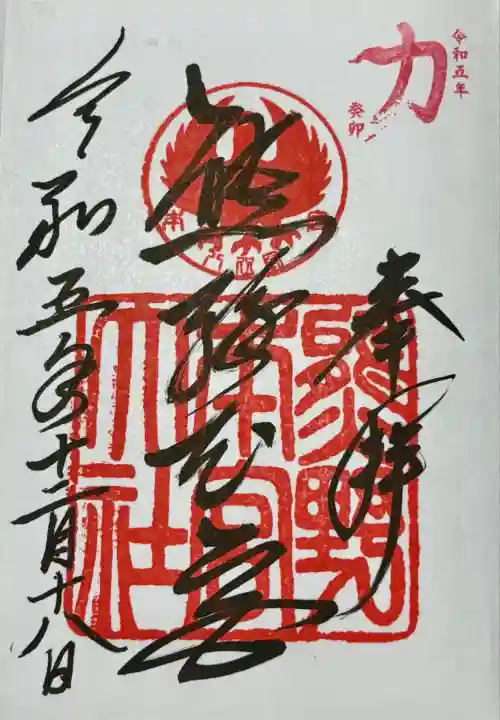 令和五年
癸卯
力
奉拝
熊野本宮
令和五年十二月十八日
熊野
本宮
大社